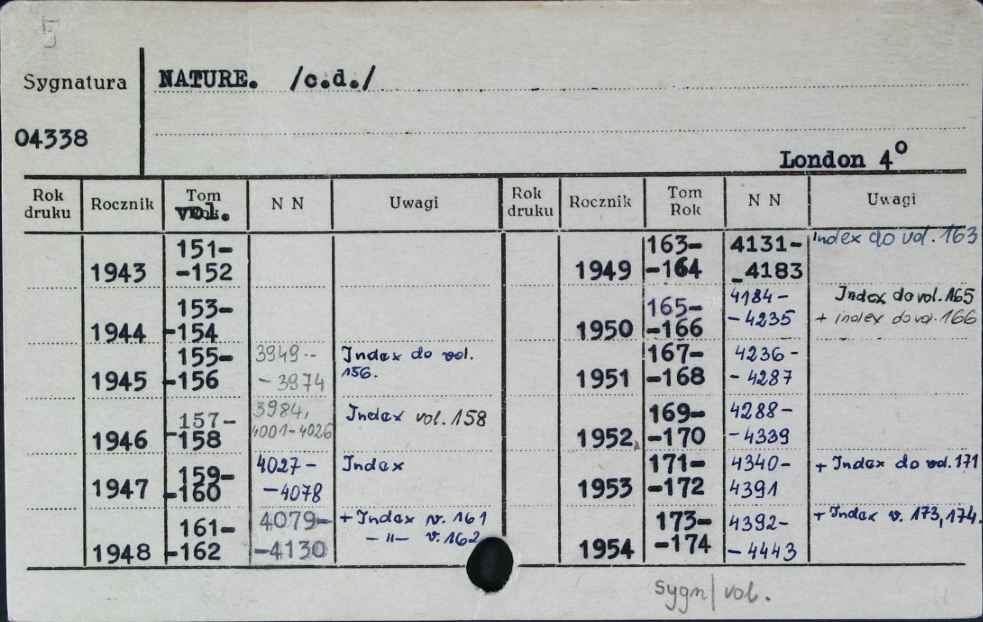 5
Sygnatura
NATURE. /c.d./
04338
London 4°
Rok druku Rocznik Tom vol. N N Uwagi Rok druku Rocznik Tom Rok N N Uwagi
1943 151- -152
1944 153- -154
1945 155- -156 3949-- - 3974 Index do vol. 156.
1946 157- -158 3984, 4001-4026 Index vol. 158
1947 159- -160 4027- -4078 Index
1948 161- -162 4079- -4130 + Index v. 161 -"- v. 162
1949 163- -164 4131- -4183 Index do vol. 163
1950 165- -166 4184- -4235 Index do vol. 165 + index do vol. 166
1951 167- -168 4236- - 4287
1952 169- -170 4288- -4339
1953 171- -172 4340- 4391 + Index do vol. 171
1954 173- -174 4392- - 4443 + Index v. 173, 174.
sygn/ vol.